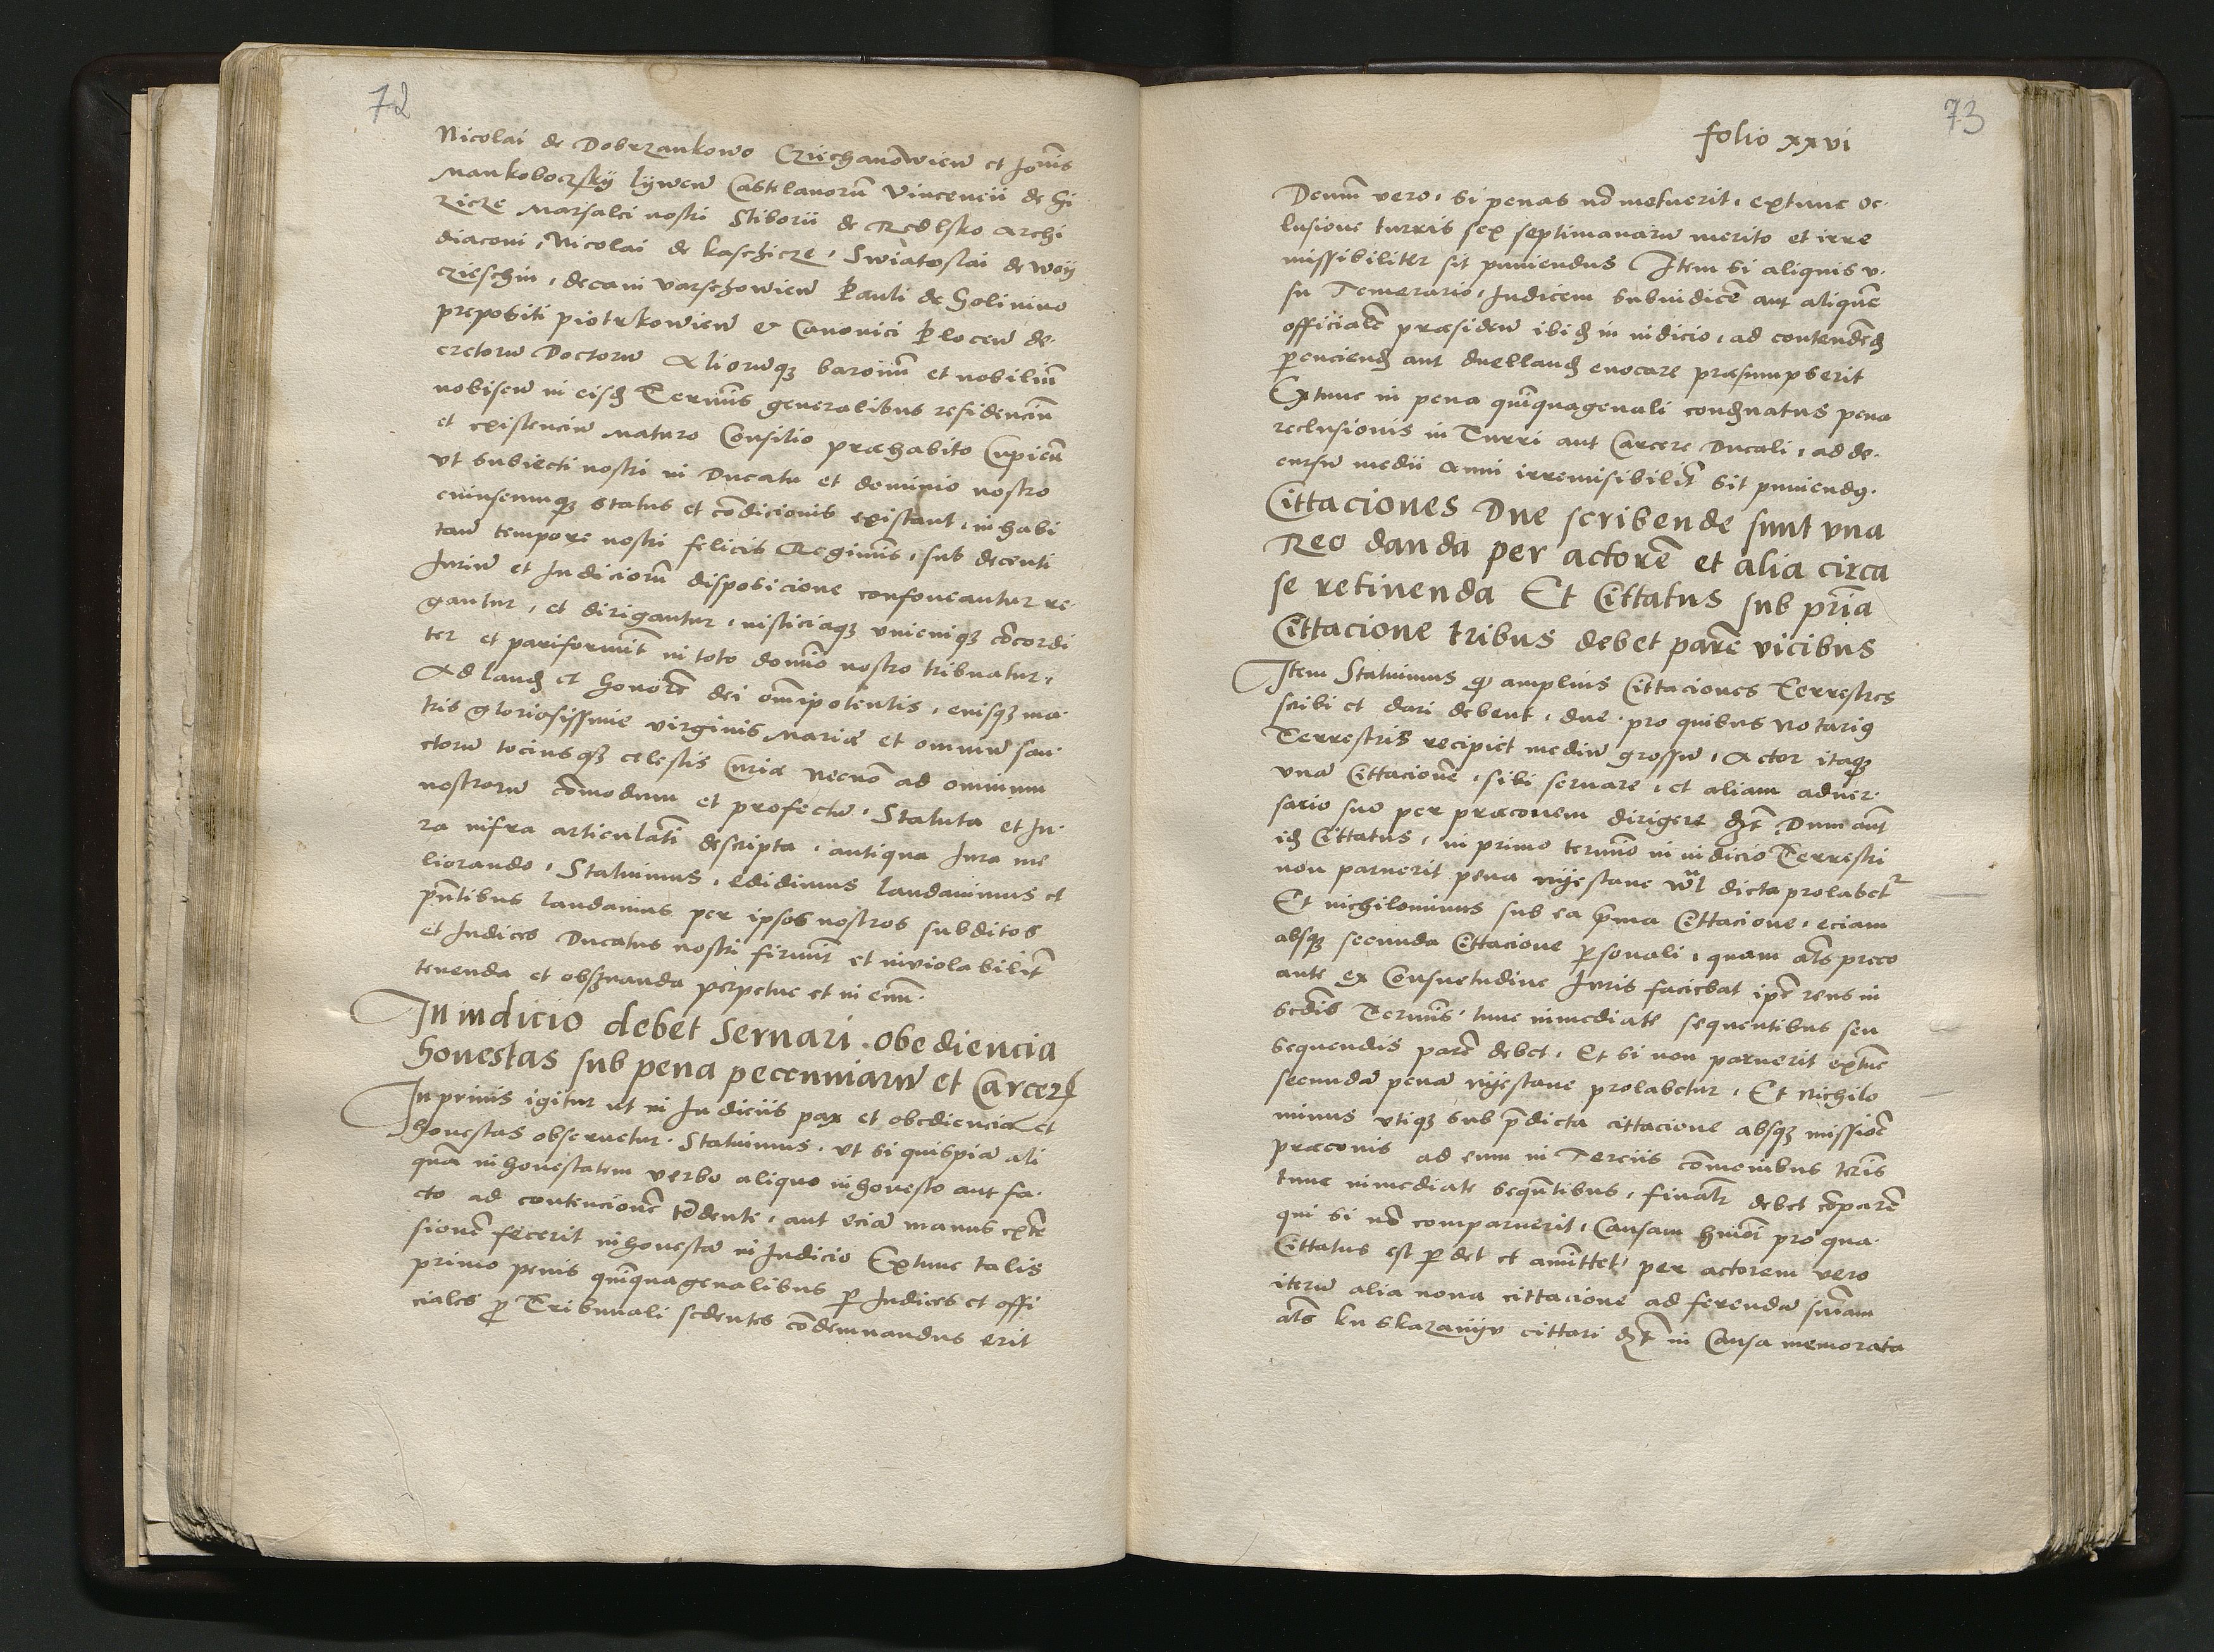 72
Nicolai de Dobrzankowo Cziechanowien̄ et Joān̄is
Mankoboczskÿ lÿwen̄ Castelanorū Vincencii de Gi
zicze Marsalci nostri Stiborii de Redlsko Archi
diaconi, Nicolai de kaschicze, Swiatoslai de woÿ
czieschin, decani varschowien̄ Pauli de Golinino
prepositi piotrkowien̄ & Canonici Plocen̄ de-
cretorū Doctorū Aliorumq; baronū et nobiliū
nobiscū in eisd; Terminis generalibus residenciū
et existenciū Maturo Consilio præhabito Cupien̄
vt subiecti nostri in Ducatu et dominio nostro
cuiuscunq; status et cōdicionis existant, inhabi
tan̄ tempore nostri felicis Regiminis, sub decenti
Juriū et Judiciorū disposicione confoueantur re-
gantur, et dirigantur, iusticiaq; vnicuiq; cōcordi
ter et pariformit̄ in toto domīo nostro tribuatur,
Ad laud; et honorē dei om̄ipotentis, eiusq; ma-
tris gloriosissime virginis Mariæ et omniū san-
ctorū tociusq; celestis Curiæ Necnō ad omnium
nostrorū cōmodum et profectū, Statuta et Ju-
ra infra articulatī descripta, antiqua Jura me
liorando, Statuimus, edidimus laudauimus et
pn̄tibus laudamus per ipsos nostros subditos
et Judices Ducatus nostri firmit̄ et inviolabilit̄
tenenda et obseruanda perpetue et in euū.
In iudicio debet Seruari obediencia
honestas sub pena pecenniarū et Carcer{
Inprimis igitur ut in Judiciis pax et obediencia et
honestas obseruetur. Statuimus, vt si quispiā ali
quā inhonestatem verbo aliquo inhonesto aut fa-
cto ad contencionē tēdenti, aut eciā manus extē
sionē fecerit inhonestā in Judicio Extunc talis
primo penis quīquagenalibus p Judices et offi
ciales p Tribunali sedentes cōdemnandus erit
73
folio xxvi
Demū vero, si penas nō metuerit, extunc oc-
lusione turris sex septimanarū merito et irre
missibiliter sit puniendus Item si aliquis v-
su Temerario, Judicem subiudicē aut aliquē
officialē præsiden̄ ibid; in iudicio, ad contendēd;
pcuciend; aut duelland; euocare præsumpserit
Extunc in pena quīquagenali cond;natus pena
reclusionis in Turri aut Carcere Ducali, ad de-
cursū medii anni irremisibilit̄ sit puniend9.
Cittaciones Due scribende sunt vna
Reo danda per actorē et alia circa
se retinenda Et Cittatus sub prīa
Cittacione tribus debet parēe vicibus
Item Statuimus q amplius Cittaciones Terrestres
scribi et dari debent, due pro quibus Notari9
Terrestris recipiet mediū grossū, Actor itaq;
vnā Cittacionē, sibi seruare, et aliam aduer-
sario suo per præconem dirigere d;t̄ Dum aūt
id; Cittatus, in primo termīo in iudicio Terrestri
non paruerit pena nÿestane wl̄ dicta prolabet²
Et nichilominus sub ea prima Cittacione, eciam
absq; secunda Cittacione psonali, quam als̄ preco
ante ex Consuetudine Juris faciebat ipē reus in
scdis Termīs, tunc immediate sequentibus seu
sequendis parē debet, Et si non paruerit extūc
secundā penā nÿestane prolabetur, Et Nichilo
minus vtiq; sub p̄dicta cittacione absq; missiōe
præconis ad eum in Terciis cōmunibus term̄is
tunc immediate sequn̄tibus, finalr̄ debet cōparēe
qui si nō comparuerit, Causam hmōi pro qua
Cittatus est pdet et amīttet, per actorem vero
iterū alia noua cittacione ad ferendā sniam
als̄ ku skazanÿv cittari d;t̄ in Causa memorata